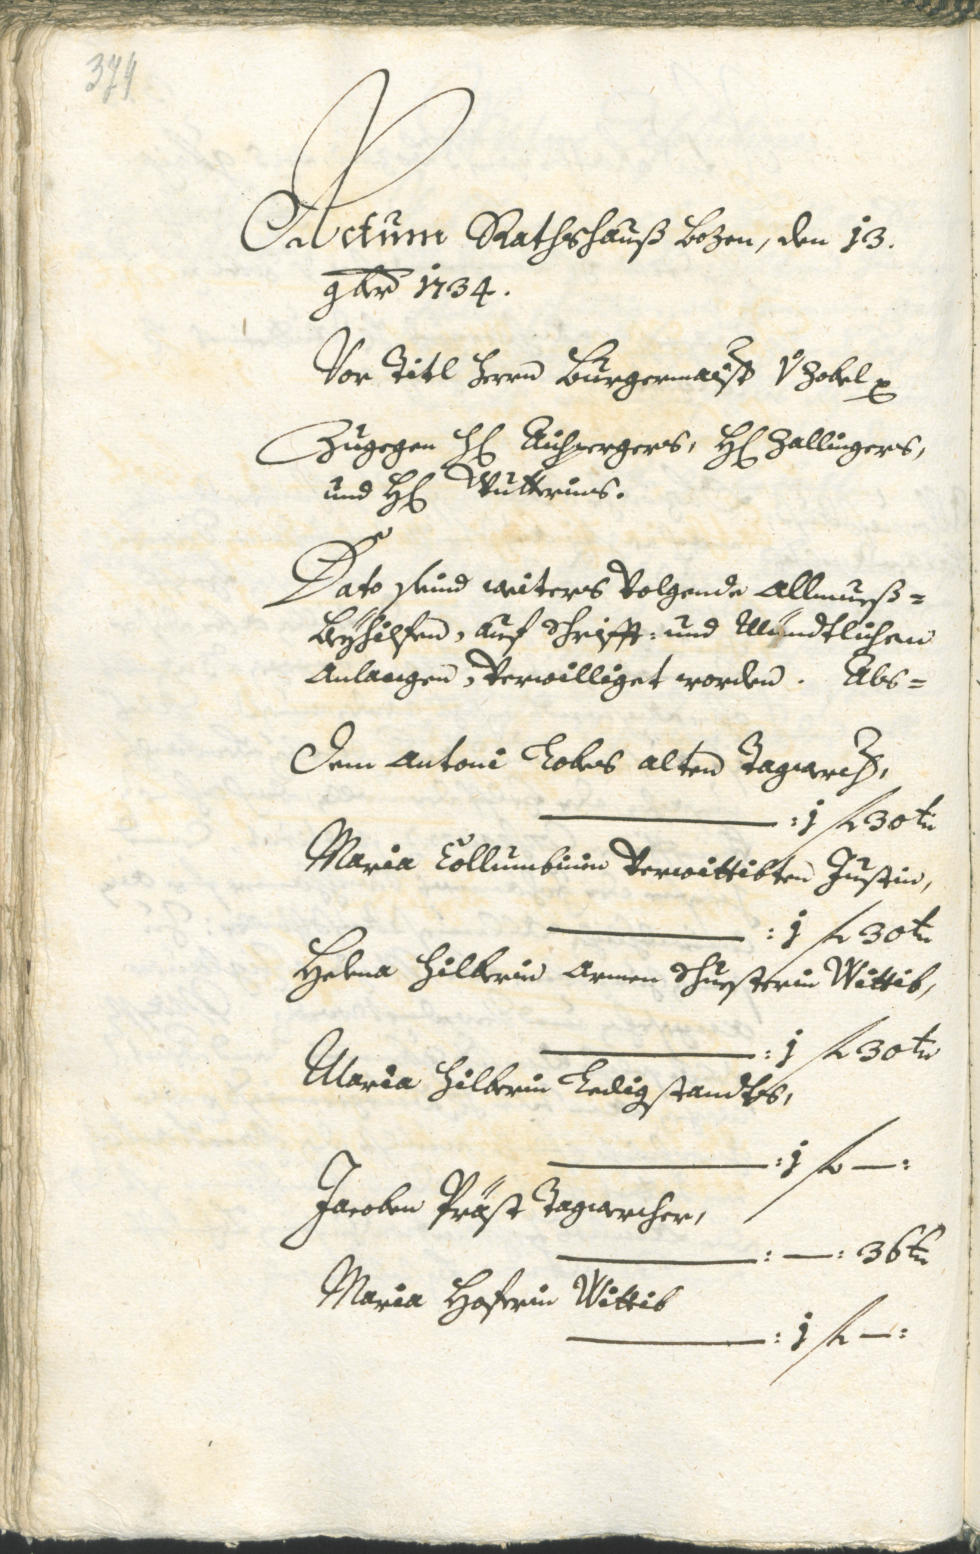 374
Actum Rathshauß Bozen, den 13.
9ber 1734.
Vor Titl Herrn Burgermaister v Zobel
Zugegen H Aichpergers, H Zallingers,
und H
Dato seind weiters Volgende Allmueß=
Beyhilfen, auf Schrifft: und Mündtlichen
Anlangen, Verwilliget worden. Als=
Dem Antoni alten Tagwerch,
:1 f 30 kr
Maria Collumbinin Verwittibten Justin,
:1 f 30 kr
Helena Hilberin Armen Schuesterin Wittib,
:1 f 30 kr
Maria Hilberin Ledig standts,
:1 f —:
Jacoben Präst Tagwercher,
: — : 36 kr
Maria Hoferin Wittib
:1 f —: